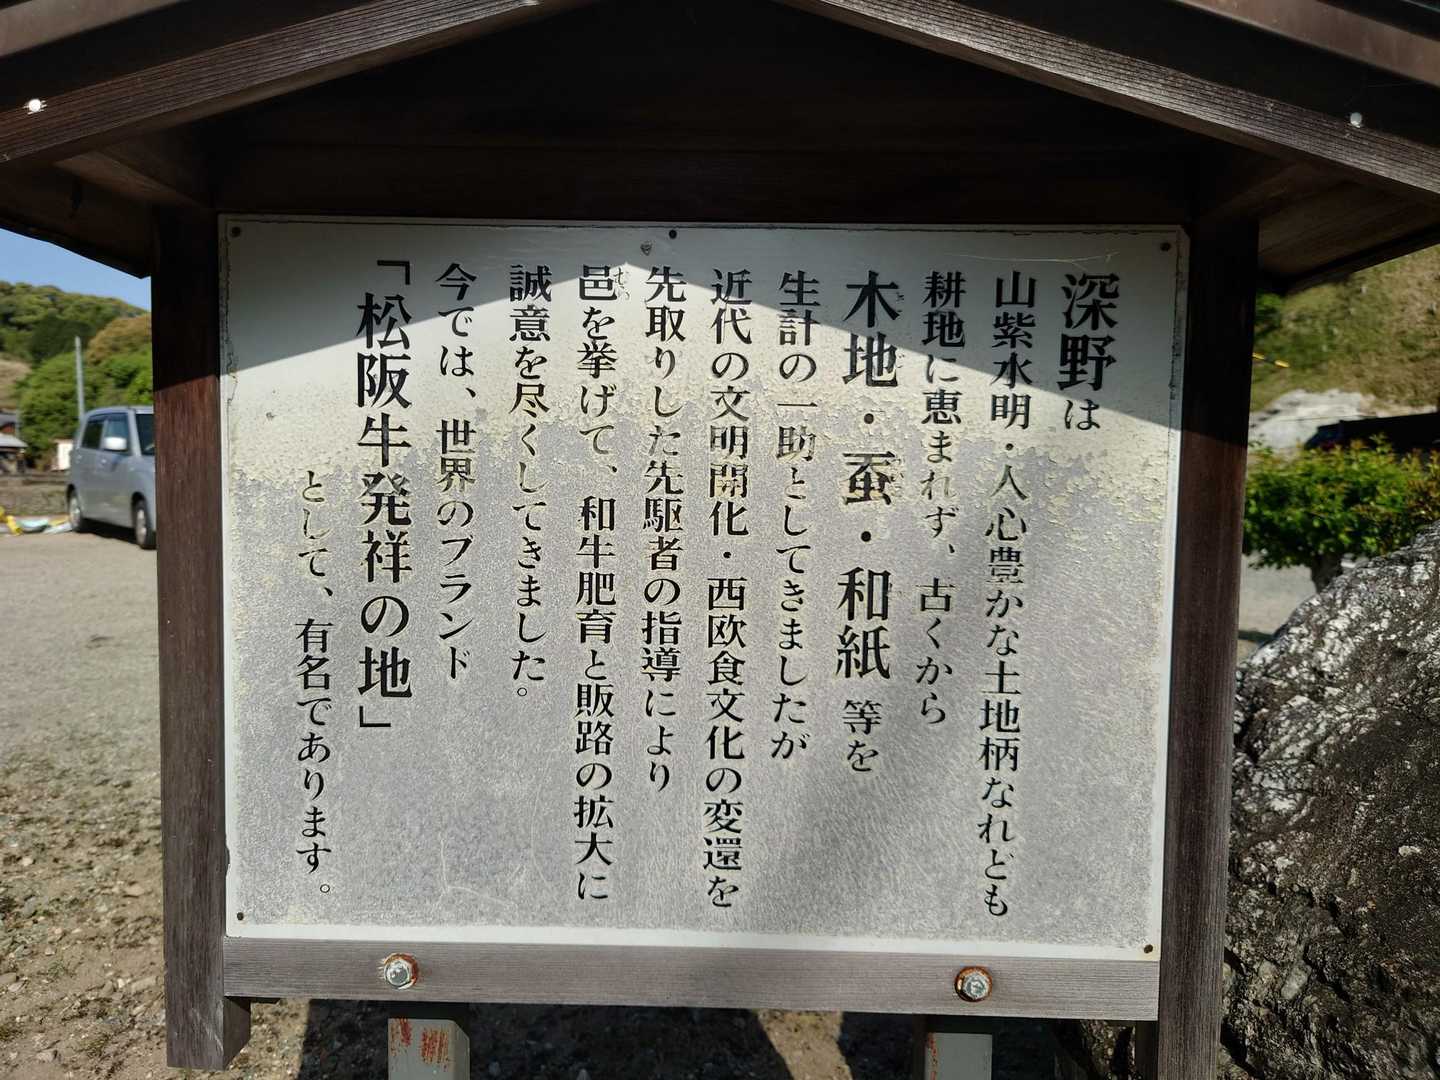 深野は
山紫水明・人心豊かな土地柄なれども
耕地に恵まれず、古くから
木地・蚕・和紙 等を
生計の一助としてきましたが
近代の文明開化・西欧食文化の変還を
先取りした先駆者の指導により
邑を挙げて、和牛肥育と販路の拡大に
誠意を尽くしてきました。
今では、世界のブランド
「松阪牛発祥の地」
として、有名であります。